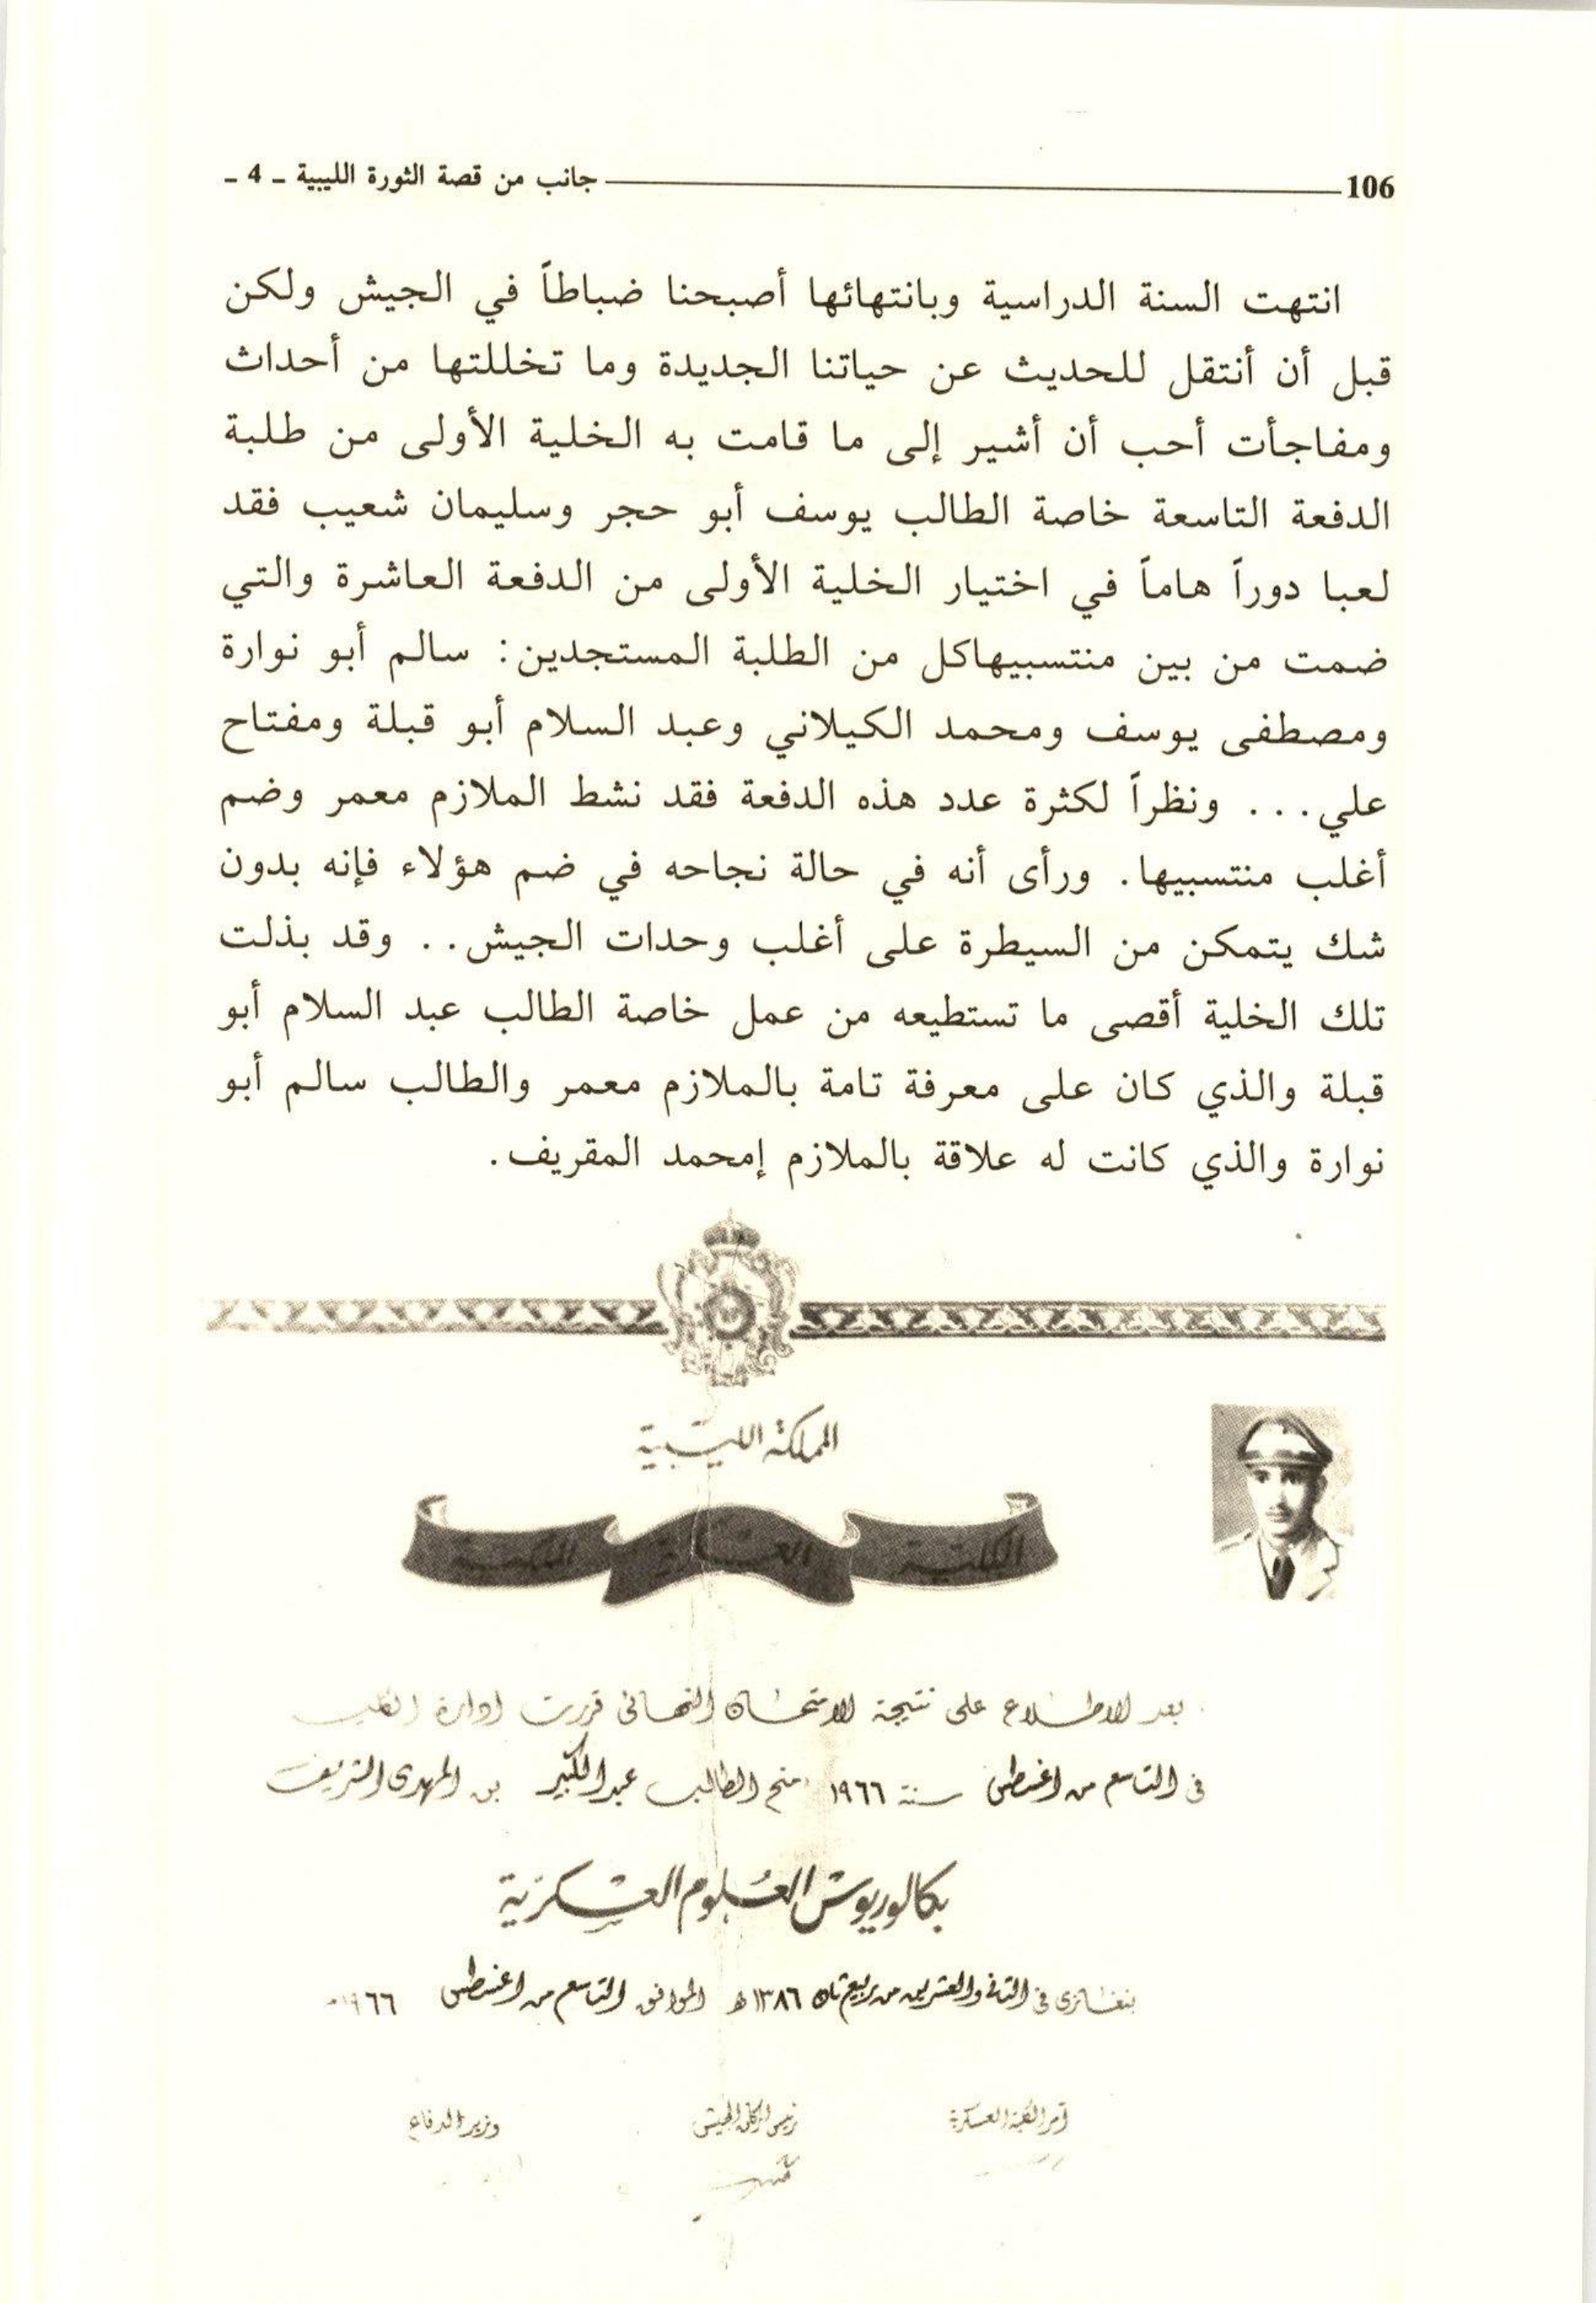 106 جانب من قصة الثورة الليبية ـ 4 ـ
انتهت السنة الدراسية وبانتهائها أصبحنا ضباطاً في الجيش ولكن
قبل أن أنتقل للحديث عن حياتنا الجديدة وما تخللتها من أحداث
ومفاجأت أحب أن أشير إلى ما قامت به الخلية الأولى من طلبة
الدفعة التاسعة خاصة الطالب يوسف أبو حجر وسليمان شعيب فقد
لعبا دوراً هاماً في اختيار الخلية الأولى من الدفعة العاشرة والتي
ضمت من بين منتسبيهاكل من الطلبة المستجدين: سالم أبو نوارة
ومصطفى يوسف ومحمد الكيلاني وعبد السلام أبو قبلة ومفتاح
علي... ونظراً لكثرة عدد هذه الدفعة فقد نشط الملازم معمر وضم
أغلب منتسبيها. ورأى أنه في حالة نجاحه في ضم هؤلاء فإنه بدون
شك يتمكن من السيطرة على أغلب وحدات الجيش.. وقد بذلت
تلك الخلية أقصى ما تستطيعه من عمل خاصة الطالب عبد السلام أبو
قبلة والذي كان على معرفة تامة بالملازم معمر والطالب سالم أبو
نوارة والذي كانت له علاقة بالملازم إمحمد المقريف.
المملكة الليبية
الكلية العسكرية الملكية
بعد الاطلاع على نتيجة الامتحان النهائى قررت ادارة الكلية
فى التاسع من اغسطس سنة ١٩٦٦ منح الطالب عبد الكبير بن المهدى الشريف
بكالوريوس العلوم العسكرية
بنغازى فى الثانى والعشرين من ربيع ثان ١٣٨٦ ه الموافق التاسع من اغسطس ١٩٦٦
آمر الكلية العسكرية رئيس اركان الجيش وزير الدفاع